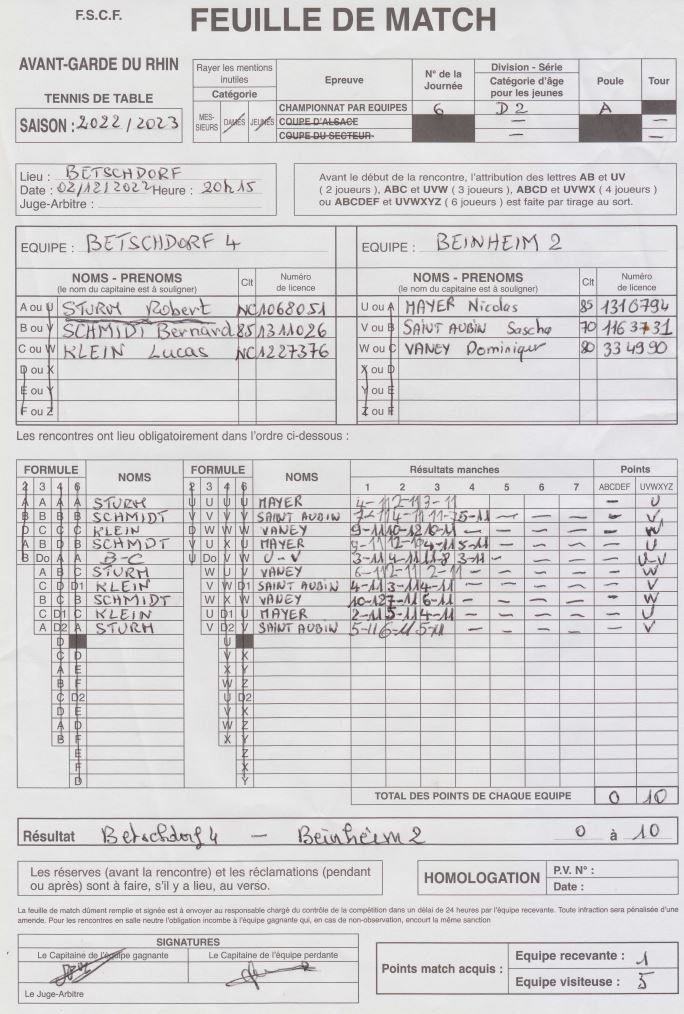 F.S.C.F.
FEUILLE DE MATCH
AVANT-GARDE DU RHIN
TENNIS DE TABLE
SAISON : 2022/2023
Rayer les mentions inutiles
Catégorie
MES-SIEURS DAMES JEUNES
Epreuve
N° de la Journée
Division - Série
Catégorie d'âge pour les jeunes
Poule
Tour
CHAMPIONNAT PAR EQUIPES 6 D2 A
COUPE D'ALSACE — —
COUPE DU SECTEUR — —
Lieu : BETSCHDORF
Date : 02/12/2022 Heure : 20h15
Juge-Arbitre :
Avant le début de la rencontre, l'attribution des lettres AB et UV
( 2 joueurs ), ABC et UVW ( 3 joueurs ), ABCD et UVWX ( 4 joueurs )
ou ABCDEF et UVWXYZ ( 6 joueurs ) est faite par tirage au sort.
EQUIPE : BETSCHDORF 4
EQUIPE : BEINHEIM 2
NOMS - PRENOMS
(le nom du capitaine est à souligner)
Clt
Numéro de licence
NOMS - PRENOMS
(le nom du capitaine est à souligner)
Clt
Numéro de licence
A ou U STURM Robert NC 1068051
U ou A MAYER Nicolas 85 1316794
B ou V SCHMIDT Bernard 85 1311026
V ou B SAINT AUBIN Sascha 70 1163731
C ou W KLEIN Lucas NC 1227376
W ou C VANEY Dominique 80 334990
D ou X
X ou D
E ou Y
Y ou E
F ou Z
Z ou F
Les rencontres ont lieu obligatoirement dans l'ordre ci-dessous :
FORMULE NOMS FORMULE NOMS Résultats manches Points
2 3 4 6 2 3 4 6 1 2 3 4 5 6 7 ABCDEF UVWXYZ
A A A A STURM U U U U MAYER 4-11 2-11 3-11 — U
B B B B SCHMIDT V V V V SAINT AUBIN 4-11 11-7 5-11 — — — — V
D C C C KLEIN D W W W VANEY 9-11 10-12 10-11 — — — — — W
A B D B SCHMIDT U V X U MAYER 12-10 4-11 5-11 — — — — U
B Do A A B-C U Do V W U-V 3-11 4-11 11-8 3-11 — — — — U-V
A B C STURM W U V VANEY 6-11 2-11 2-11 — — — — — W
C D D1 KLEIN V W D1 SAINT AUBIN 4-11 3-11 4-11 — — — — — V
B C B SCHMIDT W X W VANEY 10-12 7-11 6-11 — — — — — W
C D1 C KLEIN U D1 U MAYER 2-11 5-11 4-11 — — — — — U
A D2 A STURM V D2 V SAINT AUBIN 5-11 6-11 5-11 — — — — — V
D U
C D V X
A E X Y
B F W Z
C D2 U D2
D E V X
A D W Z
B F X Y
E Z
F X
D Y
TOTAL DES POINTS DE CHAQUE EQUIPE 0 10
Résultat Betschdorf 4 — Beinheim 2 0 à 10
Les réserves (avant la rencontre) et les réclamations (pendant
ou après) sont à faire, s'il y a lieu, au verso.
HOMOLOGATION
P.V. N° :
Date :
La feuille de match dûment remplie et signée est à envoyer au responsable chargé du contrôle de la compétition dans un délai de 24 heures par l'équipe recevante. Toute infraction sera pénalisée d'une
amende. Pour les rencontres en salle neutre l'obligation incombe à l'équipe gagnante qui, en cas de non-observation, encourt la même sanction
SIGNATURES
Le Capitaine de l'équipe gagnante
Le Capitaine de l'équipe perdante
Le Juge-Arbitre
Points match acquis :
Equipe recevante : 1
Equipe visiteuse : 5